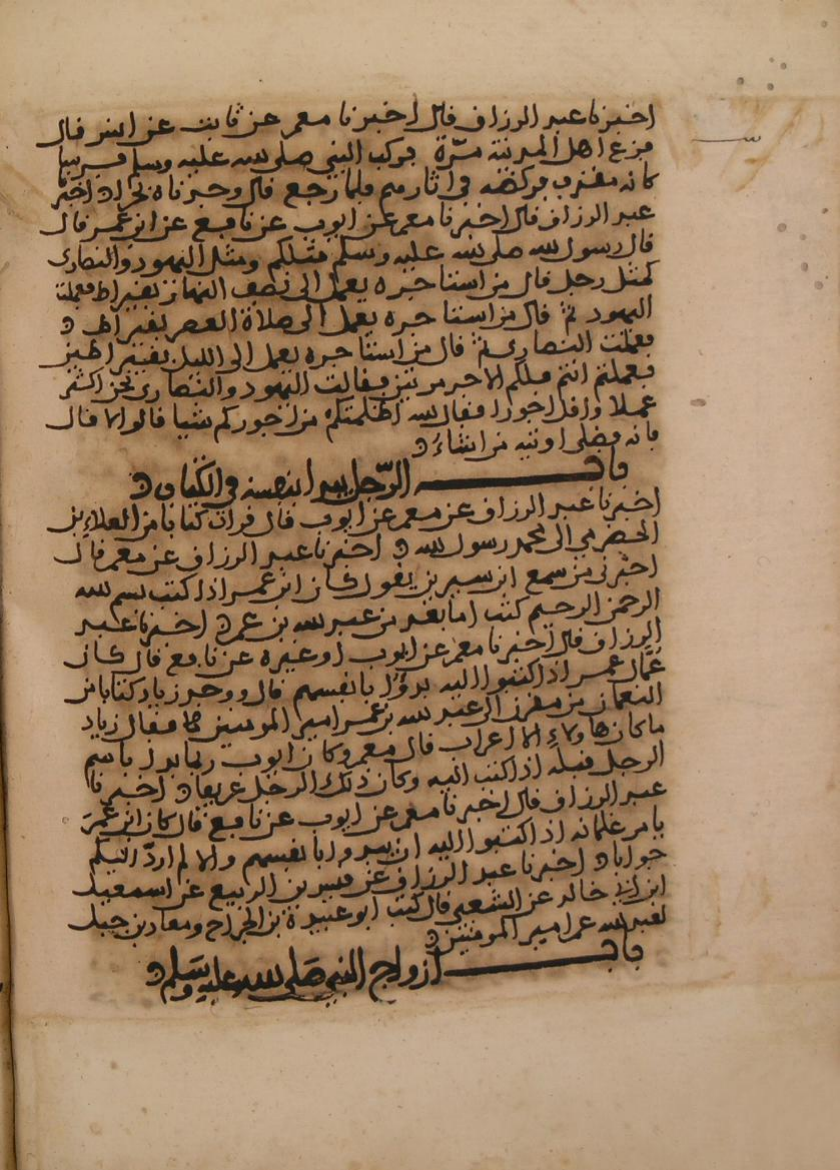 اخبرنا عبد الرزاق قال اخبرنا معمر عن ثابت عن انس قال
فزع اهل المدينة مرّة فركب النبي صلى الله عليه وسلم فرسا
كانه مقرف فركضه في اثارهم فلما رجع قال وجدناه بحرا اخبرنا
عبد الرزاق قال اخبرنا معمر عن ايوب عن نافع عن ابن عمر قال
قال رسول الله صلى الله عليه وسلم مثلكم ومثل اليهود والنصارى
كمثل رجل قال من استاجره يعمل الى نصف النهار بقيراط فعملت
اليهود ثم قال من استاجره يعمل الى صلاة العصر بقيراط
فعملت النصارى ثم قال من استاجره يعمل الى الليل بقيراطين
فعملتم انتم فلكم الاجر مرتين فقالت اليهود والنصارى نحن اكثر
عملا واقل اجورا فقال الله اظلمتكم من اجوركم شيا قالوا لا قال
فانه فضلى اوتيه من اشاء
باب الرّجل يبدا بنفسه في الكتاب
اخبرنا عبد الرزاق عن معمر عن ايوب قال قرات كتابا من العلاء بن
الحضرمي الى محمد رسول الله اخبرنا عبد الرزاق عن معمر قال
اخبرني من سمع ابن سيرين يقول كان ابن عمر اذا كتب بسم الله
الرحمن الرحيم كتب اما بعد من عبد الله بن عمر اخبرنا عبد
الرزاق قال اخبرنا معمر عن ايوب او غيره عن نافع قال كان
عمّال عمر اذا كتبوا اليه بدؤا بانفسهم قال ووجد زياد كتابا من
النعمان بن مقرن الى عبد الله عمر امير المومنين فقال زياد
ما كان هاولاء الا اعراب قال معمر وكان ايوب ربما بدا باسم
الرجل قبله اذا كتب اليه وكان ذلك الرجل عريفا اخبرنا
عبد الرزاق قال اخبرنا معمر عن ايوب عن نافع قال كان ابن عمر
يامر غلمانه اذا كتبوا اليه ان يبدوا بانفسهم والا لم اردّ اليكم
جوابا اخبرنا عبد الرزاق عن قيس بن الربيع عن اسمعيل
ابن ابي خالد عن الشعبي قال كتب ابو عبيدة بن الجراح ومعاذ بن جبل
لعبد الله عمر امير المومنين
باب ازواج النبي صَلى الله عليه وسَلم